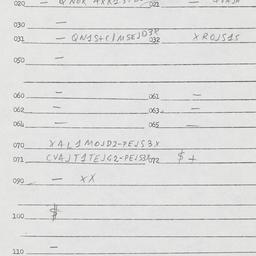 020 — 021
030 —
031 — QN1S+C/MSEJD3P 032 XROJS1S
050 —
060 — 061 —
062 — 063 —
064 — 065 —
070 XAL1MOJD2-PEJS3X
071 CVAJT1TEJG2-PEJS3X 072 $ +
090 — XX
100 $
110 —